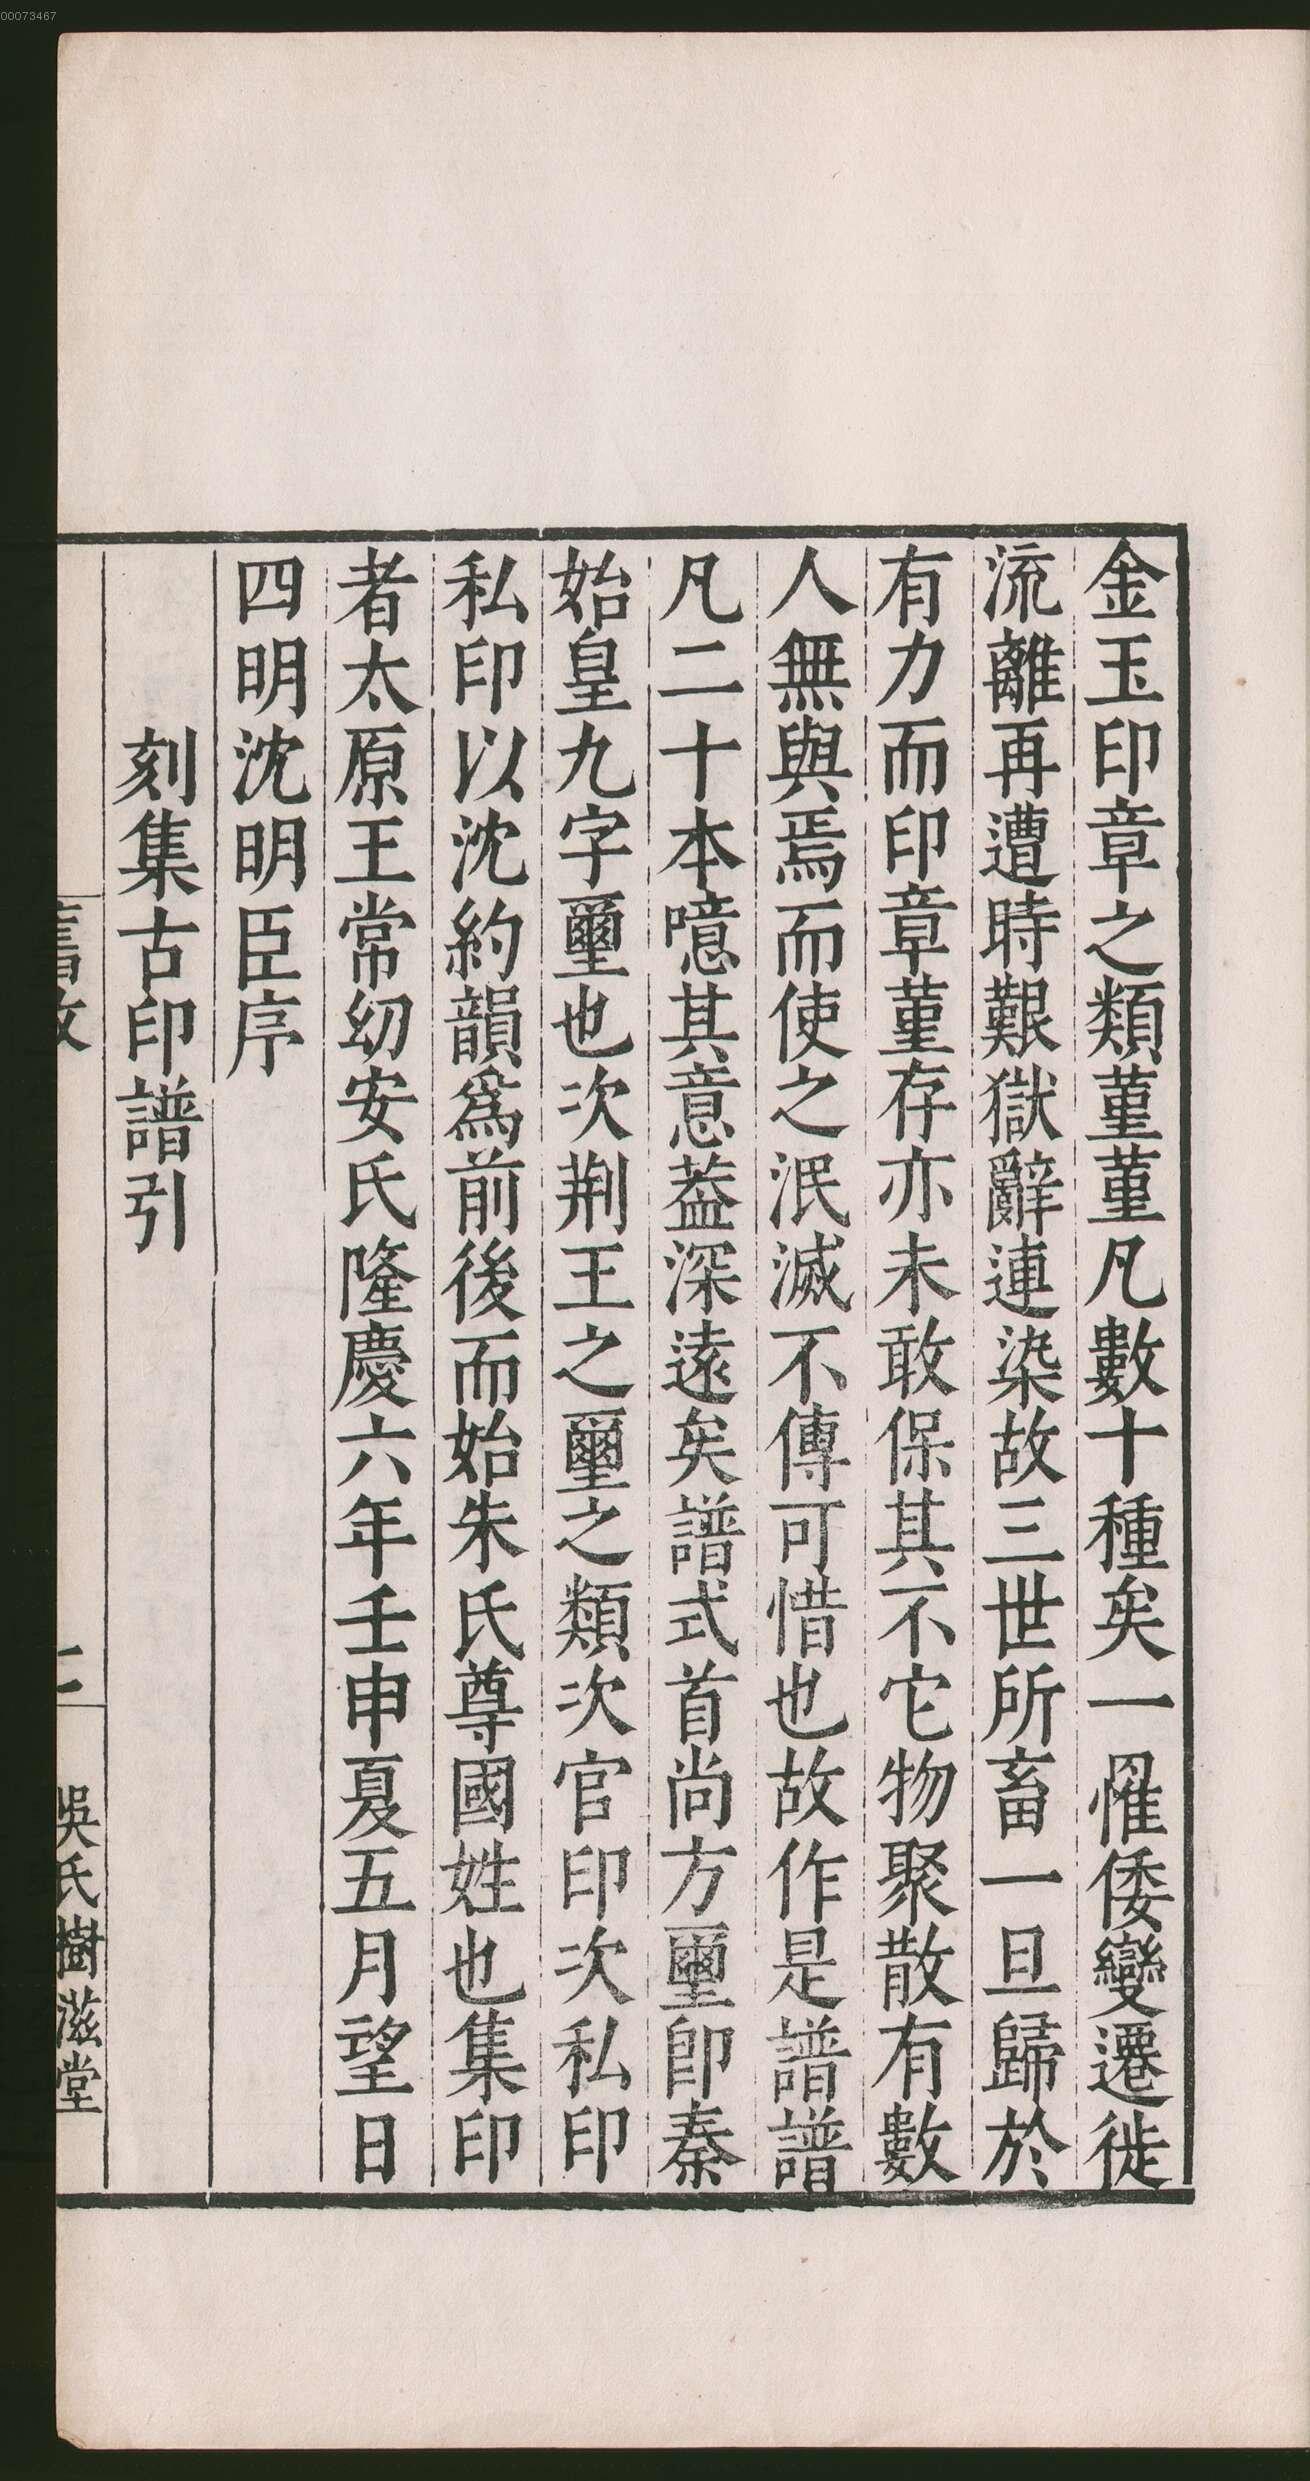 00073467
金玉印章之類菫菫凡數十種矣一罹倭變遷徙
流離再遭時艱獄辭連染故三世所畜一旦歸於
有力而印章菫存亦未敢保其不它物聚散有數
人無與焉而使之泯滅不傳可惜也故作是譜譜
凡二十本噫其意葢深遠矣譜式首尚方璽卽秦
始皇九字璽也次荆王之璽之類次官印次私印
私印以沈約韻爲前後而始朱氏尊國姓也集印
者太原王常幼安氏隆慶六年壬申夏五月望日
四明沈明臣序
刻集古印譜引
二
吳氏樹滋堂